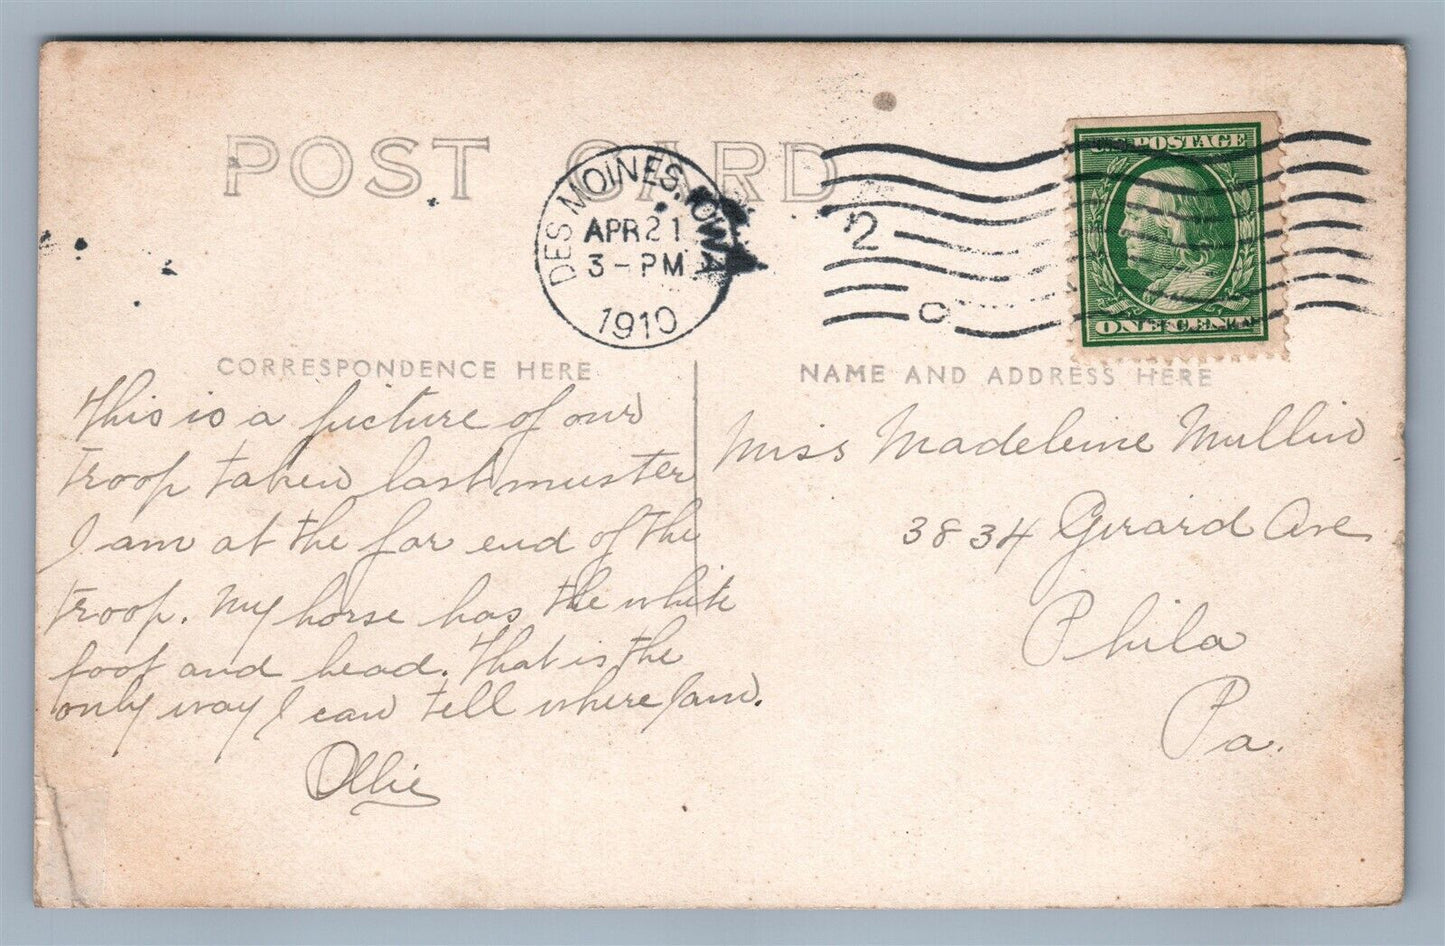 POST CARD
DES MOINES, IOWA
APR 21
3-PM
1910
2
C
U.S. POSTAGE
ONE CENT
CORRESPONDENCE HERE
NAME AND ADDRESS HERE
This is a picture of our
troop taken last muster
I am at the far end of the
troop. My horse has the white
foot and head. That is the
only way I can tell where I am.
Ollie
Miss Madeleine Mullin
3834 Girard Ave
Phila
Pa.